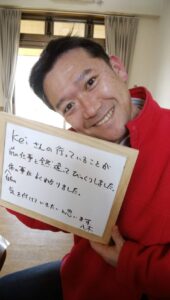 Keiさんの行っていることが
前の仕事と全然違ってびっくりしました。
体の事がよくわかりました。
気を付けていきたいと思います